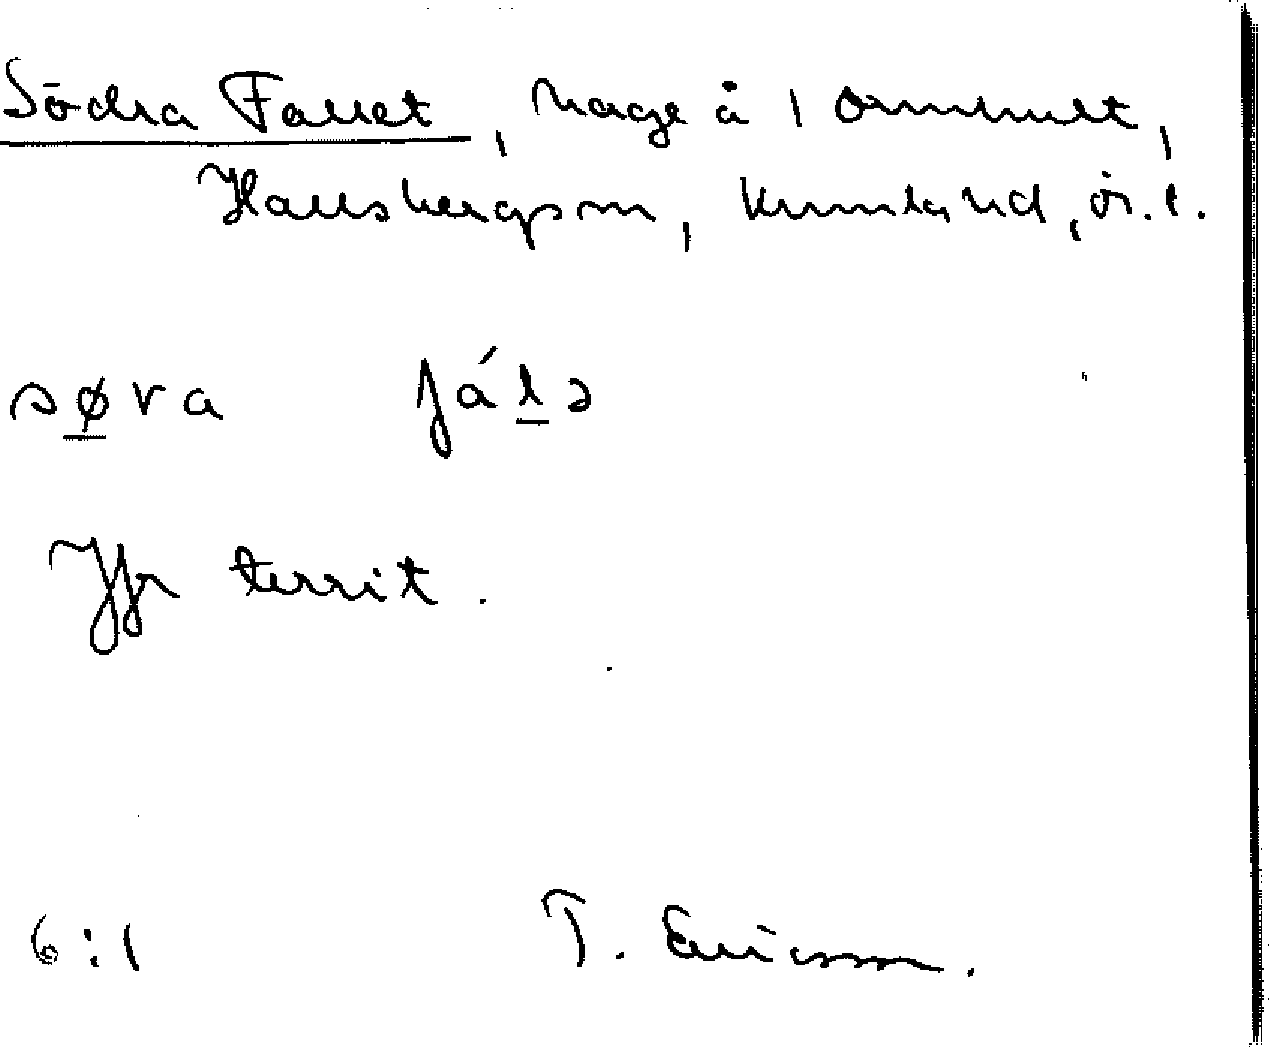 Södra Fallet, hage å 1 Ormhult,
Hallsbergs sn, Kumla hd, ör.l.
sø̲va fál̲ə
Jfr territ.
6:1 T. Ericsson.